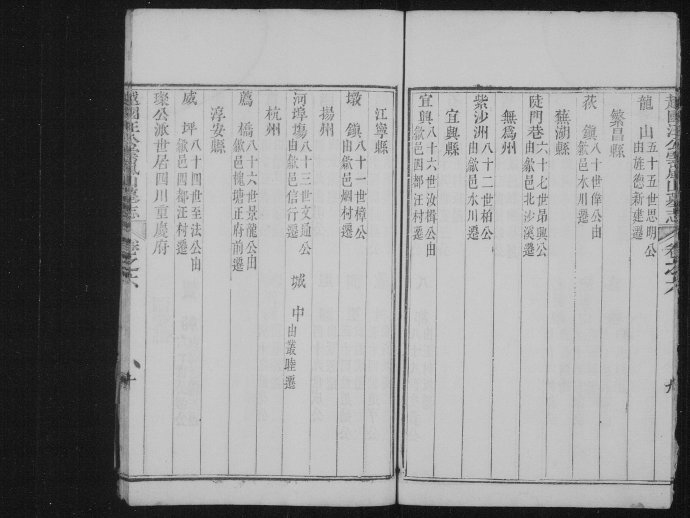 越國汪公雲嵐山墓志 卷之六 九
龍山 五十五世思明公由旌德新建遷
繁昌縣
荻鎭 八十一世倖公由歙邑水川遷
蕪湖縣
陡門巷 六十七世昂興公由歙邑北沙溪遷
無爲州
紫沙洲 八十二世柏公由歙邑水川遷
宜興縣
宜興 八十六世汝㭿公由歙邑西都汪村遷
江寧縣
墩鎭 八十一世樟公由歙邑烟村遷
揚州
河埠塲 八十三世文通公由歙邑信行遷 城中 由叢睦遷
杭州
薦橋 八十六世景龍公由歙邑槐塘正府前遷
淳安縣
威坪 八十四世至法公由歙邑四都汪村遷
璨公派世居四川重慶府
越國汪公雲嵐山墓志 卷之六 十